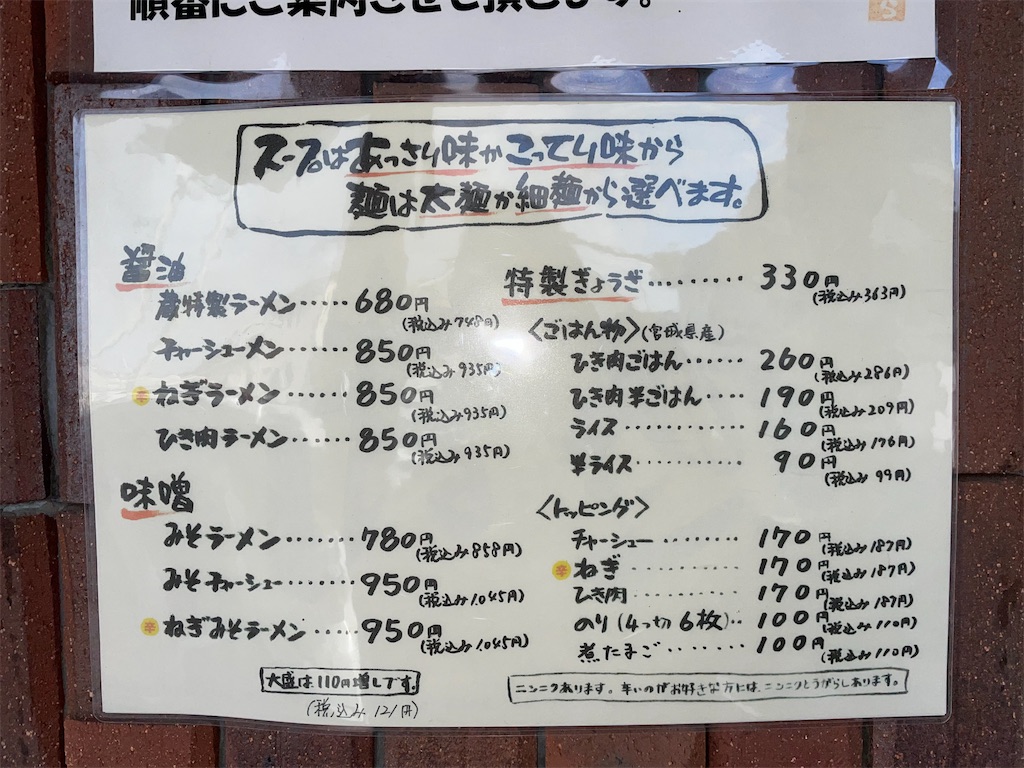 順番にご案内させて頂きます。
スープはあっさり味かこってり味から
麺は太麺か細麺から選べます。
醤油
蔵特製ラーメン……680円
(税込み748円)
チャーシューメン……850円
(税込み935円)
辛 ねぎラーメン……850円
(税込み935円)
ひき肉ラーメン……850円
(税込み935円)
味噌
みそラーメン……780円
(税込み858円)
みそチャーシュー……950円
(税込み1,045円)
辛 ねぎみそラーメン……950円
(税込み1,045円)
大盛は110円増しです。
(税込み121円)
特製ぎょうざ……330円
(税込み363円)
〈ごはん物〉(宮城県産)
ひき肉ごはん……260円
(税込み286円)
ひき肉半ごはん……190円
(税込み209円)
ライス……160円
(税込み176円)
半ライス……90円
(税込み99円)
〈トッピング〉
チャーシュー……170円
(税込み187円)
辛 ねぎ……170円
(税込み187円)
ひき肉……170円
(税込み187円)
のり(4つ切6枚)‥100円
(税込み110円)
煮たまご……100円
(税込み110円)
ニンニクあります。辛いのがお好きな方には、ニンニクとうがらしあります。